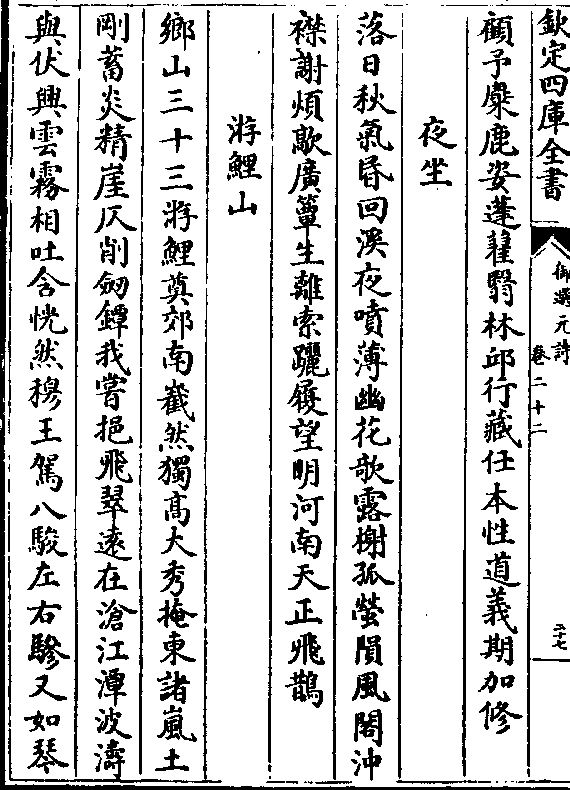 欽定四庫全書
御選元詩
卷二十二
二十七
顧予麋鹿姿蓬藋翳林邱行藏任本性道義期加修
夜坐
落日秋氣昏回溪夜噴薄幽花歌露榭孤螢隕風閣沖
襟謝煩歊廣簟生離索躧屐望明河南天正飛鵲
游鯉山
鄉山三十三游鯉奠郊南巀然獨髙大秀掩東諸嵐土
剛蓄炎精崖仄削劒鐔我嘗挹飛翠遠在滄江潭波濤
與伏興雲霧相吐含恍然穆王駕八駿左右驂又如琴